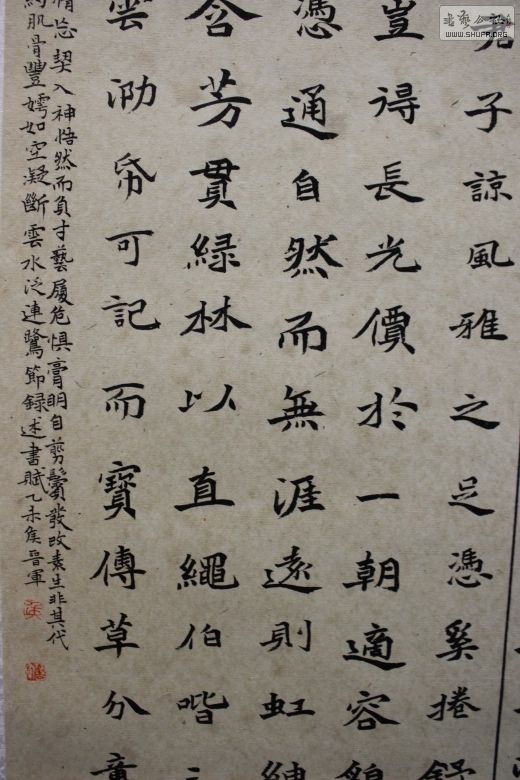 子諒風雅之足憑奚捲舒
豈得長光價於一朝適容貌
憑通自然而無涯遠則虹紳
含芳貫綠林以直繩伯喈
雲泐帋可記而寶傳草分
忘契入神悟然而負寸藝履危惧膏明自剪鬢發改素生非其代
肌骨豐嫮如空凝斷雲水泛連鷺節録述書賦乙未侯晋軍
WWW.SHUFA.ORG